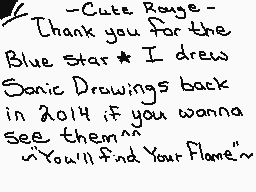 -Cute Rouge-
Thank you for the
Blue star ★ I drew
Sonic Drawings back
in 2014 if you wanna
see them^^
~"You'll find Your Flame"~